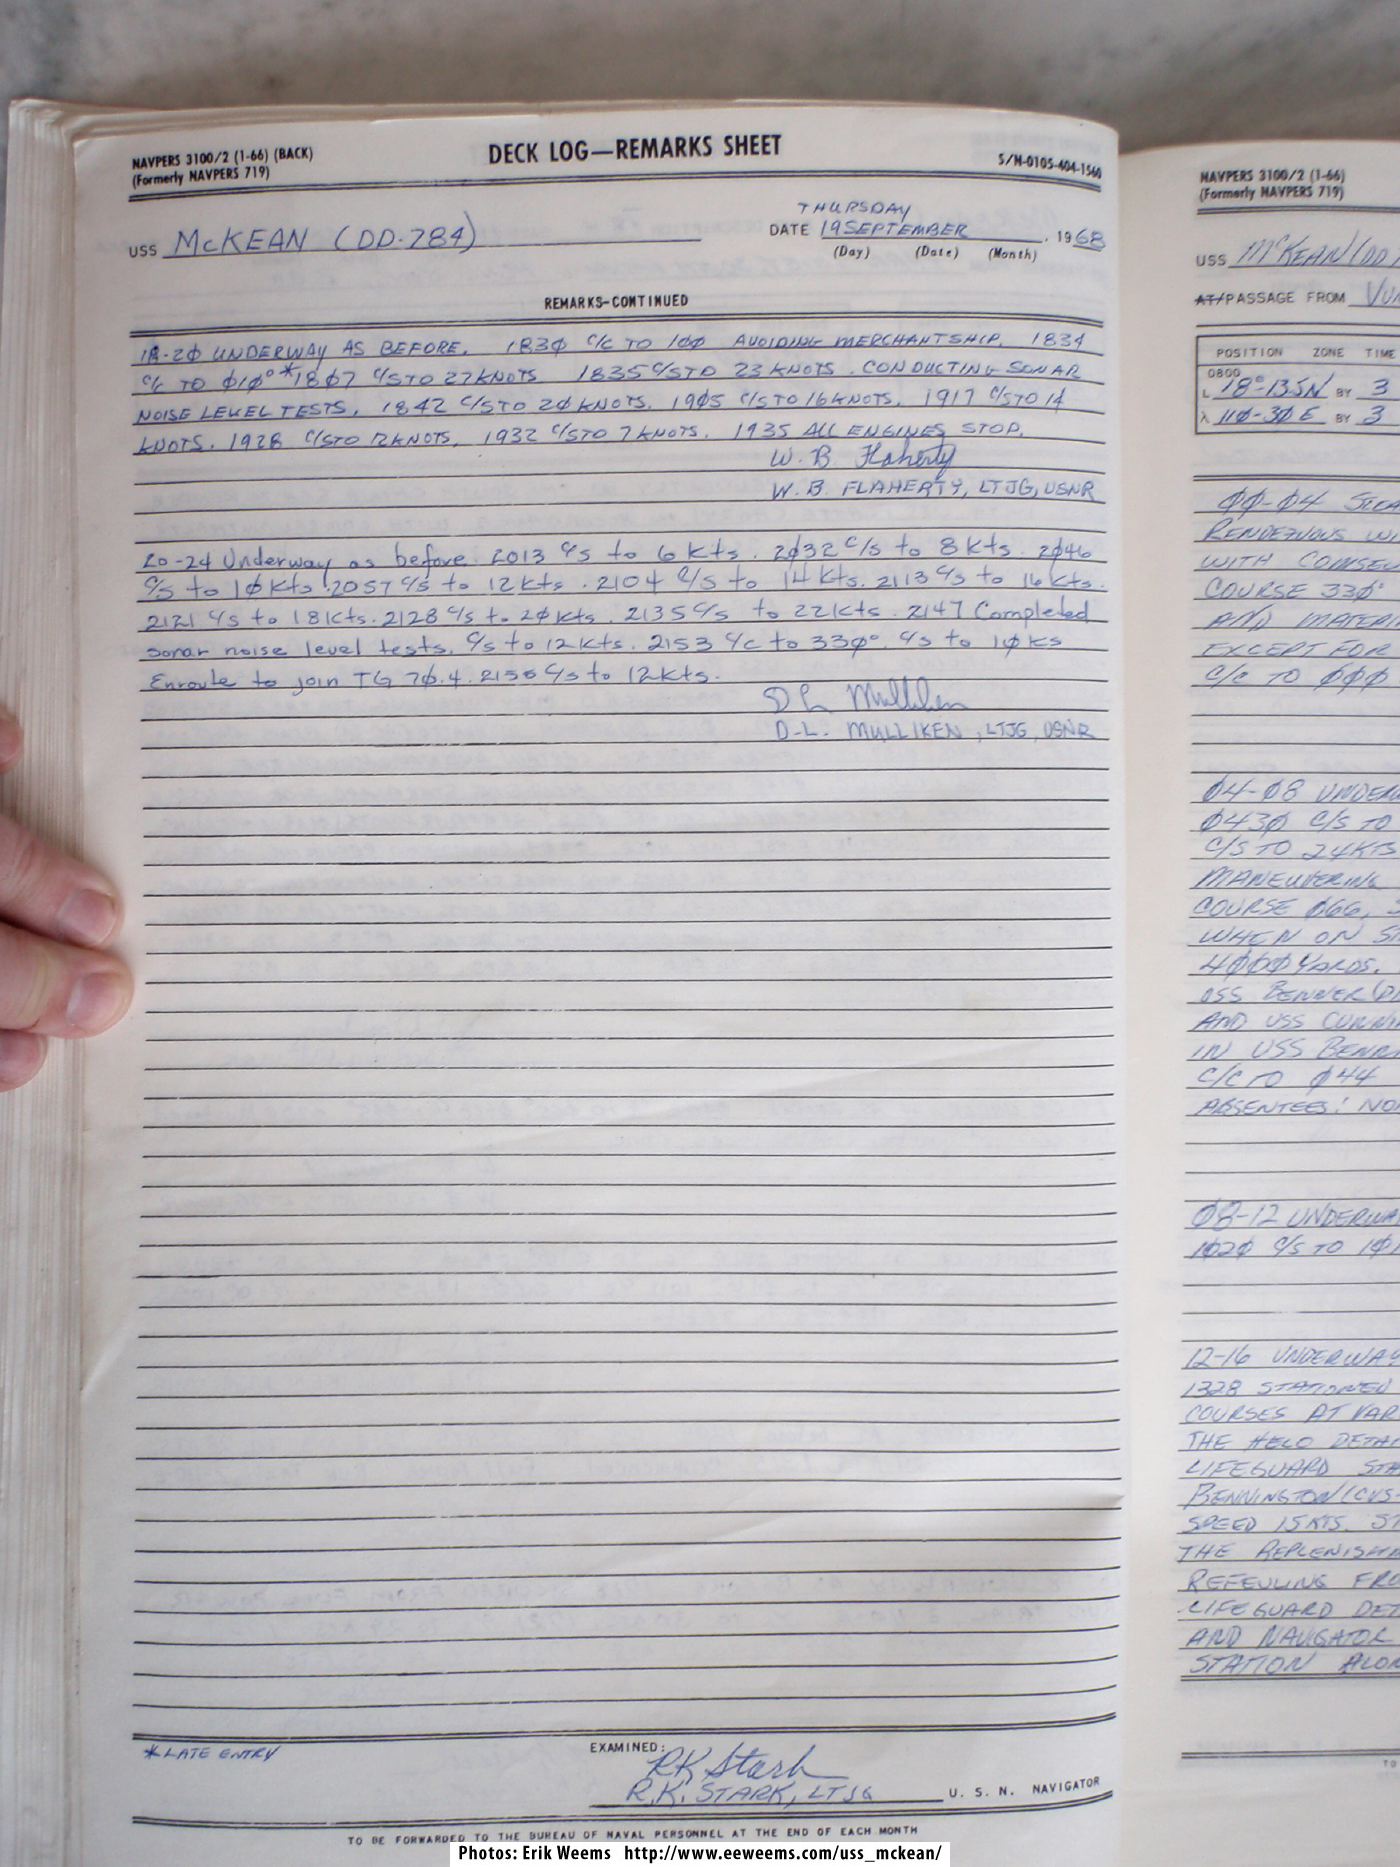 NAVPERS 3100/2 (1-66) (BACK)
(Formerly NAVPERS 719)
DECK LOG—REMARKS SHEET
S/N-0105-404-1560
USS McKEAN (DD-784)
THURSDAY
DATE 19 SEPTEMBER, 1968
(Day) (Date) (Month)
REMARKS-CONTINUED
18-20 UNDERWAY AS BEFORE. 1830 C/C TO 100 AVOIDING MERCHANTSHIP. 1834
C/C TO 010° *1807 C/S TO 27 KNOTS 1835 C/S TO 23 KNOTS. CONDUCTING SONAR
NOISE LEVEL TESTS. 1842 C/S TO 20 KNOTS. 1905 C/S TO 16 KNOTS. 1917 C/S TO 14
KNOTS. 1928 C/S TO 12 KNOTS. 1932 C/S TO 7 KNOTS. 1935 ALL ENGINES STOP.
W. B. Flaherty
W. B. FLAHERTY, LTJG, USNR
20-24 Underway as before. 2013 C/s to 6 Kts. 2032 C/s to 8 Kts. 2046
C/s to 10 Kts. 2057 C/s to 12 Kts. 2104 C/s to 14 Kts. 2113 C/s to 16 Kts.
2121 C/s to 18 Kts. 2128 C/s to 20 Kts. 2135 C/s to 22 Kts. 2147 Completed
sonar noise level tests. C/s to 12 Kts. 2153 C/c to 330° C/s to 10 Ks
Enroute to join TG 70.4. 2156 C/s to 12 Kts.
D L Mulliken
D-L. MULLIKEN, LTJG, USNR
*LATE ENTRY
EXAMINED:
RK Stark
R.K. STARK, LTJG U. S. N. NAVIGATOR
TO BE FORWARDED TO THE BUREAU OF NAVAL PERSONNEL AT THE END OF EACH MONTH
NAVPERS 3100/2 (1-66)
(Formerly NAVPERS 719)
USS McKEAN (DD
AT/PASSAGE FROM
POSITION ZONE TIME
0800
L 18°-13.5N BY 3
λ 110-30E BY 3
00-04
RENDEZVOUS
WITH
COURSE 330°
AND
EXCEPT FOR
C/C TO 000
04-08
0430 C/S TO
C/S TO 24 KTS
MANEUVERING
COURSE 066,
WHEN ON
4000 YARDS.
USS BENNER (
AND USS
IN USS
C/C TO 044
ABSENTEES:
08-12
1020 C/S TO
12-16 UNDERWAY
1328 STATIONED
COURSES AT
THE HELO
LIFEGUARD
BENNINGTON (CVS-
SPEED 15 KTS.
THE
REFEULING
LIFEGUARD
AND NAVIGATOR
STATION
TO
Photos: Erik Weems http://www.eeweems.com/uss_mckean/